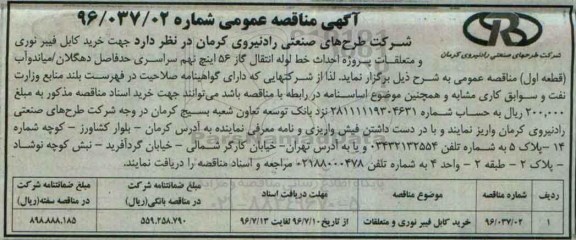 آگهی مناقصه عمومی شماره ۹۶/۰۳۷/۰۲
شرکت طرحهای صنعتی رادنیروی کرمان
شرکت طرح‌های صنعتی رادنیروی کرمان در نظر دارد جهت خرید کابل فیبر نوری
و متعلقات پروژه احداث خط لوله انتقال گاز ۵۶ اینچ نهم سراسری حدفاصل دهگلان/میاندوآب
(قطعه اول) مناقصه عمومی به شرح ذیل برگزار نماید. لذا از شرکتهایی که دارای گواهینامه صلاحیت در فهرست بلند منابع وزارت
نفت و سوابق کاری مشابه و همچنین موضوع اساسنامه در رابطه با مناقصه باشد می‌توانند جهت خرید اسناد مناقصه مذکور به مبلغ
۲۰۰,۰۰۰ ریال به حساب شماره ۲۸۱۱۱۱۱۹۳۰۴۶۳۱ نزد بانک توسعه تعاون شعبه بسیج کرمان در وجه شرکت طرح‌های صنعتی
رادنیروی کرمان واریز نمایند و با در دست داشتن فیش واریزی و نامه معرفی نماینده به آدرس کرمان – بلوار کشاورز – کوچه شماره
۱۴ – پلاک ۵ به شماره تلفن ۰۳۴۳۲۱۳۲۵۵۴ و یا به آدرس تهران – خیابان کارگر شمالی – خیابان گردآفرید – نبش کوچه نوشاد
– پلاک ۲ – طبقه ۲ – واحد ۴ به شماره تلفن ۰۲۱۸۸۰۰۰۴۷۸ مراجعه و اسناد مناقصه را دریافت نمایند.
ردیف شماره مناقصه موضوع مناقصه مهلت دریافت اسناد مبلغ ضمانتنامه شرکت در مناقصه بانکی(ریال) مبلغ ضمانتنامه شرکت در مناقصه سفته(ریال)
۱ ۹۶/۰۳۷/۰۲ خرید کابل فیبر نوری و متعلقات از تاریخ ۹۶/۷/۱۰ لغایت ۹۶/۷/۱۳ ۵۵۹.۲۵۸.۷۹۰ ۸۹۸.۸۸۸.۱۸۵